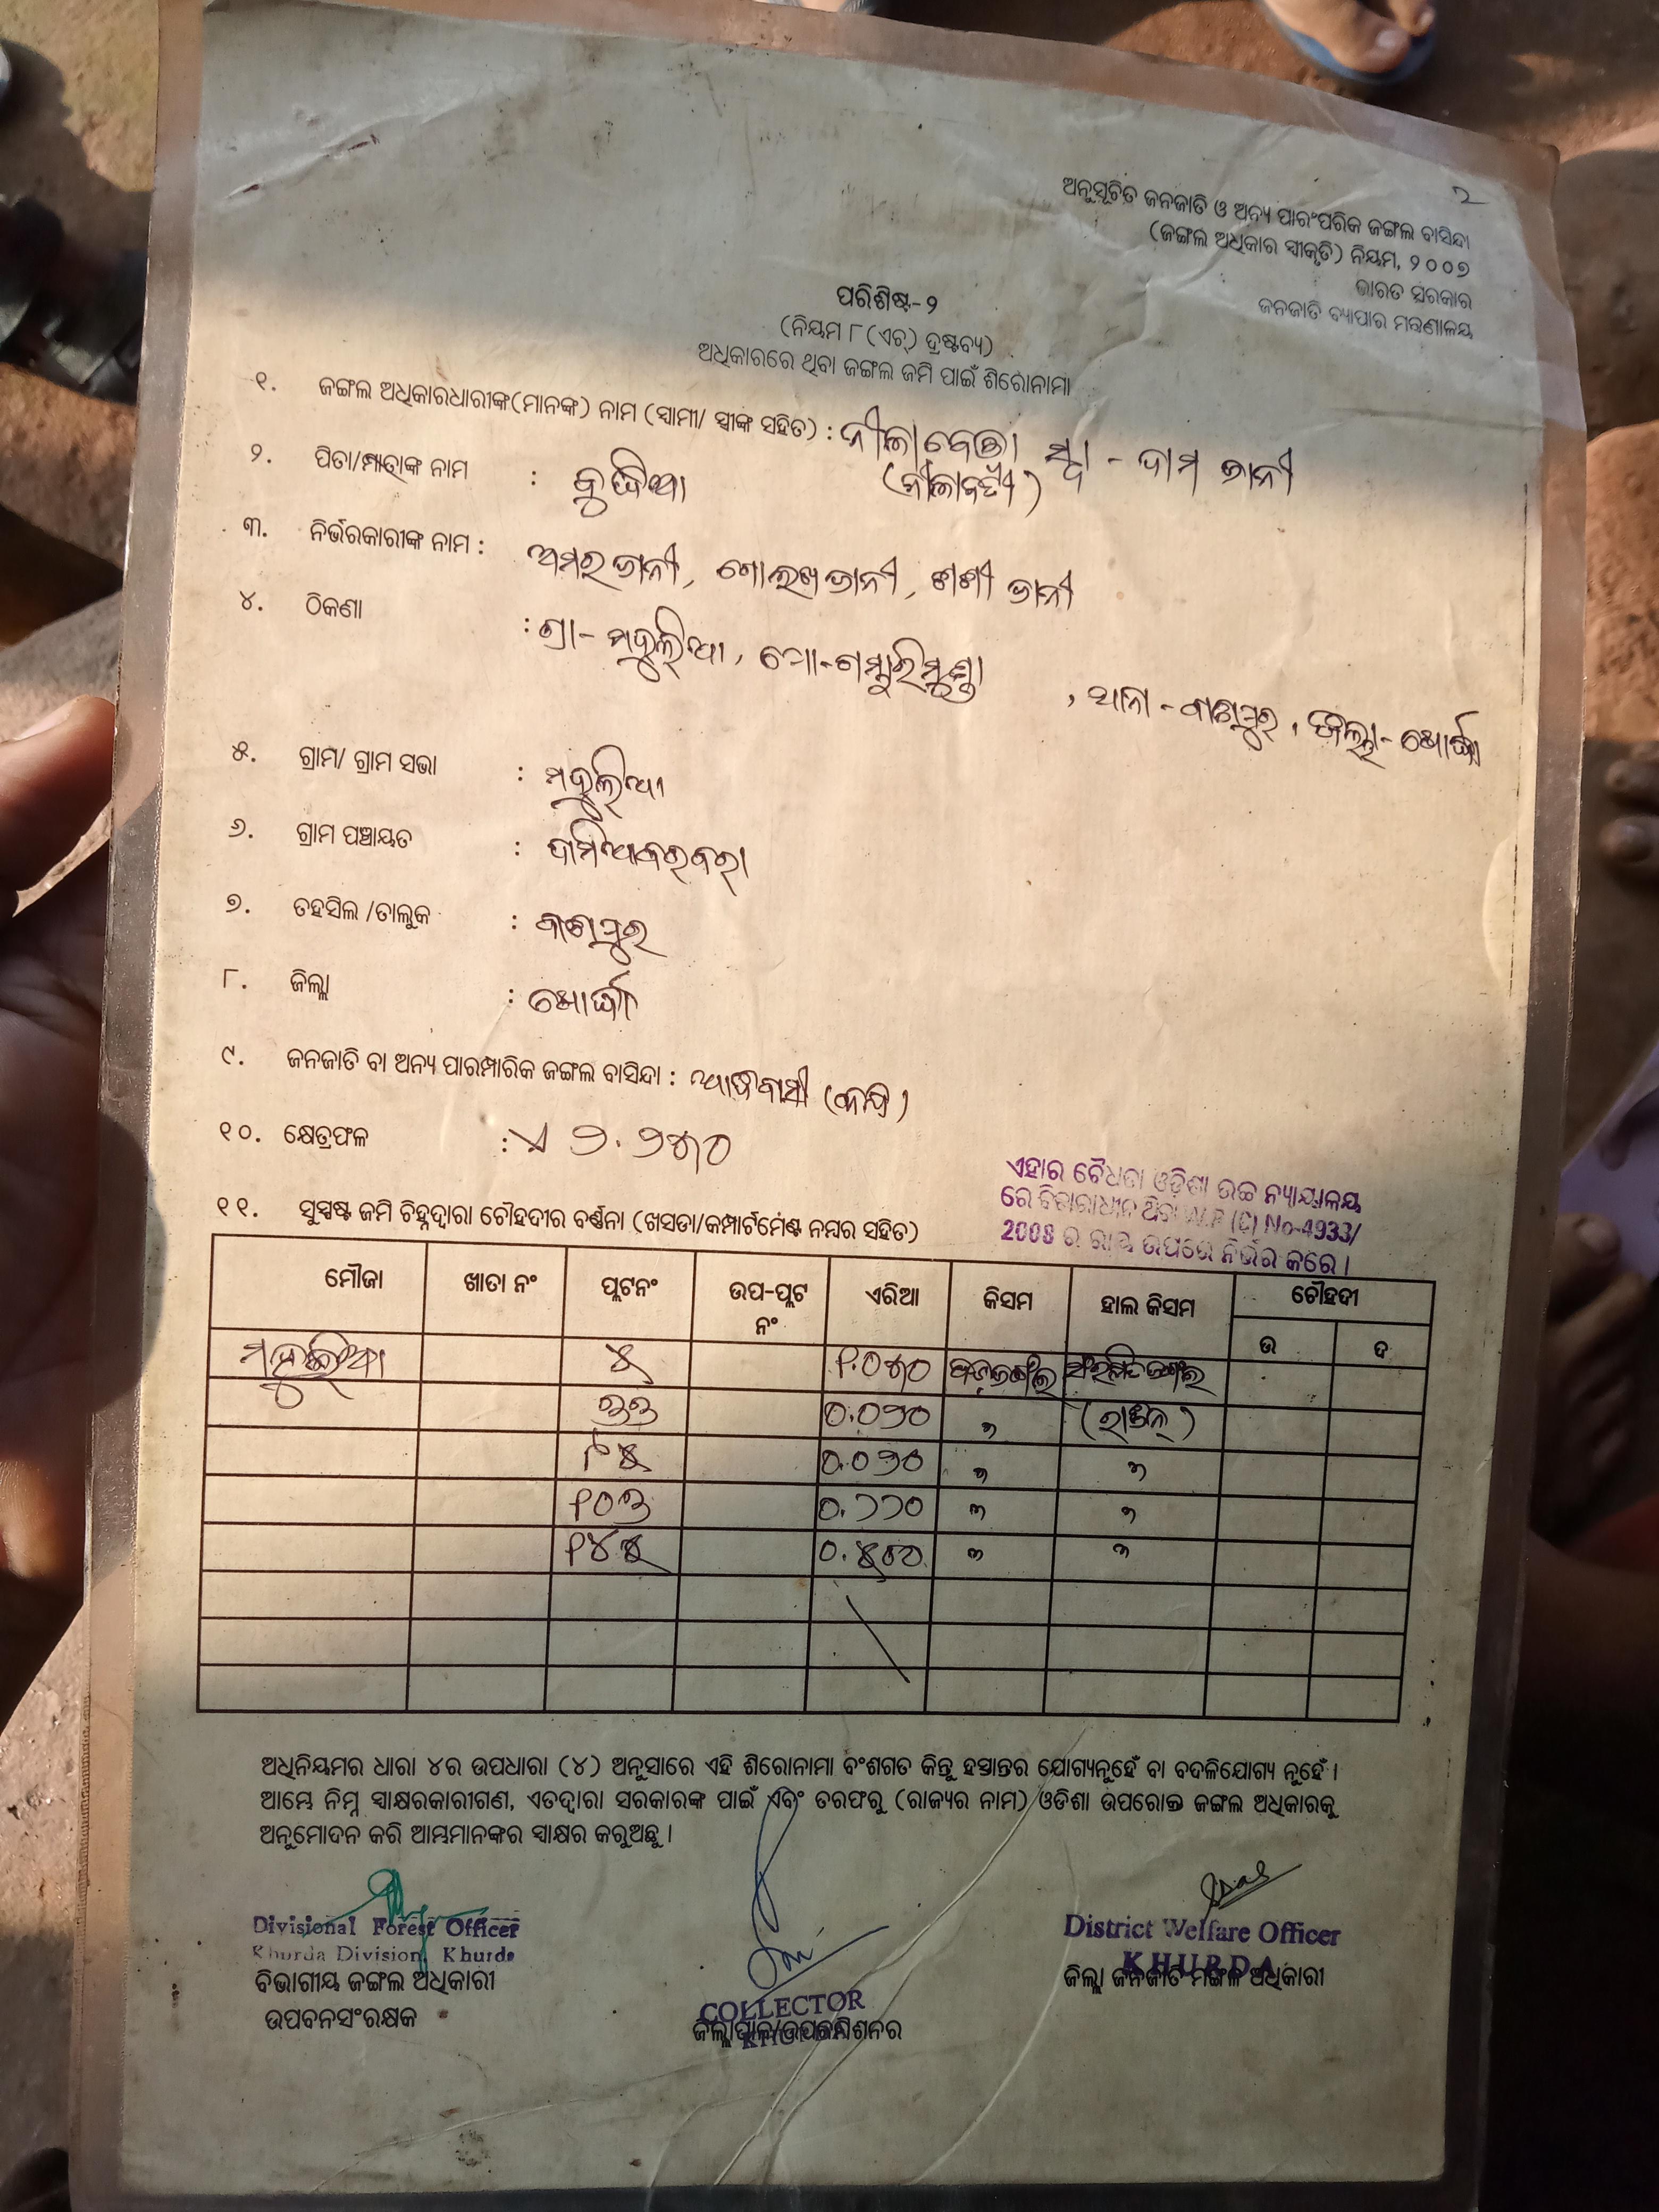 ୨
ଅନୁସୂଚିତ ଜନଜାତି ଓ ଅନ୍ୟ ପାରଂପରିକ ଜଙ୍ଗଲ ବାସିନ୍ଦା
(ଜଙ୍ଗଲ ଅଧିକାର ସ୍ୱୀକୃତି) ନିୟମ, ୨୦୦୭
ଭାରତ ସରକାର
ଜନଜାତି ବ୍ୟାପାର ମନ୍ତ୍ରଣାଳୟ
ପରିଶିଷ୍ଟ-୨
(ନିୟମ ୮ (ଏଚ୍) ଦ୍ରଷ୍ଟବ୍ୟ)
ଅଧିକାରରେ ଥିବା ଜଙ୍ଗଲ ଜମି ପାଇଁ ଶିରୋନାମା
୧. ଜଙ୍ଗଲ ଅଧିକାରଧାରୀଙ୍କ(ମାନଙ୍କ) ନାମ (ସ୍ୱାମୀ/ ସ୍ତ୍ରୀଙ୍କ ସହିତ) : ସ୍ୱା - ଦାମ ଭାନୀ
୨. ପିତା/ମାତାଙ୍କ ନାମ :
୩. ନିର୍ଭରକାରୀଙ୍କ ନାମ : ଅମର ଭାନୀ, ଗୋଲଖ ଭାନୀ, ଶଶୀ ଭାନୀ
୪. ଠିକଣା : ଗ୍ରା- ମହୁଲିଆ, ପୋ-ଗମ୍ଭାରିମୁଣ୍ଡା, ଥାନା - ବାଣପୁର, ଜିଲ୍ଲା- ଖୋର୍ଦ୍ଧା
୫. ଗ୍ରାମ/ ଗ୍ରାମ ସଭା : ମହୁଲିଆ
୬. ଗ୍ରାମ ପଞ୍ଚାୟତ : ଦାମିଆବରବରା
୭. ତହସିଲ /ତାଲୁକ : ବାଣପୁର
୮. ଜିଲ୍ଲା : ଖୋର୍ଦ୍ଧା
୯. ଜନଜାତି ବା ଅନ୍ୟ ପାରମ୍ପାରିକ ଜଙ୍ଗଲ ବାସିନ୍ଦା : ଆଦିବାସୀ (କନ୍ଧ)
୧୦. କ୍ଷେତ୍ରଫଳ : ଏ ୨.୨୫୦
ଏହାର ବୈଧତା ଓଡ଼ିଶା ଉଚ୍ଚ ନ୍ୟାୟାଳୟ
ରେ ବିଚାରାଧୀନ ଥିବା W.P (C) No-4933/
2008 ର ରାୟ ଉପରେ ନିର୍ଭର କରେ ।
୧୧. ସୁସ୍ପଷ୍ଟ ଜମି ଚିହ୍ନଦ୍ୱାରା ଚୌହଦୀର ବର୍ଣ୍ଣନା (ଖସଡା/କମ୍ପାର୍ଟମେଣ୍ଟ ନମ୍ବର ସହିତ)
ମୌଜା ଖାତା ନଂ ପ୍ଲଟନଂ ଉପ-ପ୍ଲଟ ନଂ ଏରିଆ କିସମ ହାଲ କିସମ ଚୌହଦୀ
ଉ ଦ
ମହୁଲିଆ ୫ ୧.୦୫୦
୩୩ ୦.୦୨୦ "
୧୫ ୦.୦୨୦ " "
୧୦୩ ୦.୨୨୦ " "
୧୪୫ " "
ଅଧିନିୟମର ଧାରା ୪ର ଉପଧାରା (୪) ଅନୁସାରେ ଏହି ଶିରୋନାମା ବଂଶଗତ କିନ୍ତୁ ହସ୍ତାନ୍ତର ଯୋଗ୍ୟନୁହେଁ ବା ବଦଳିଯୋଗ୍ୟ ନୁହେଁ ।
ଆମ୍ଭେ ନିମ୍ନ ସ୍ୱାକ୍ଷରକାରୀଗଣ, ଏତଦ୍ୱାରା ସରକାରଙ୍କ ପାଇଁ ଏବଂ ତରଫରୁ (ରାଜ୍ୟର ନାମ) ଓଡିଶା ଉପରୋକ୍ତ ଜଙ୍ଗଲ ଅଧିକାରକୁ
ଅନୁମୋଦନ କରି ଆମ୍ଭମାନଙ୍କର ସ୍ୱାକ୍ଷର କରୁଅଛୁ ।
Divisional Forest Officer
Khurda Division Khurda
ବିଭାଗୀୟ ଜଙ୍ଗଲ ଅଧିକାରୀ
ଉପବନସଂରକ୍ଷକ
COLLECTOR
ଜିଲ୍ଲାପାଳ/ଉପକମିଶନର
District Welfare Officer
KHURDA
ଜିଲ୍ଲା ଜନଜାତି ମଙ୍ଗଳ ଅଧିକାରୀ